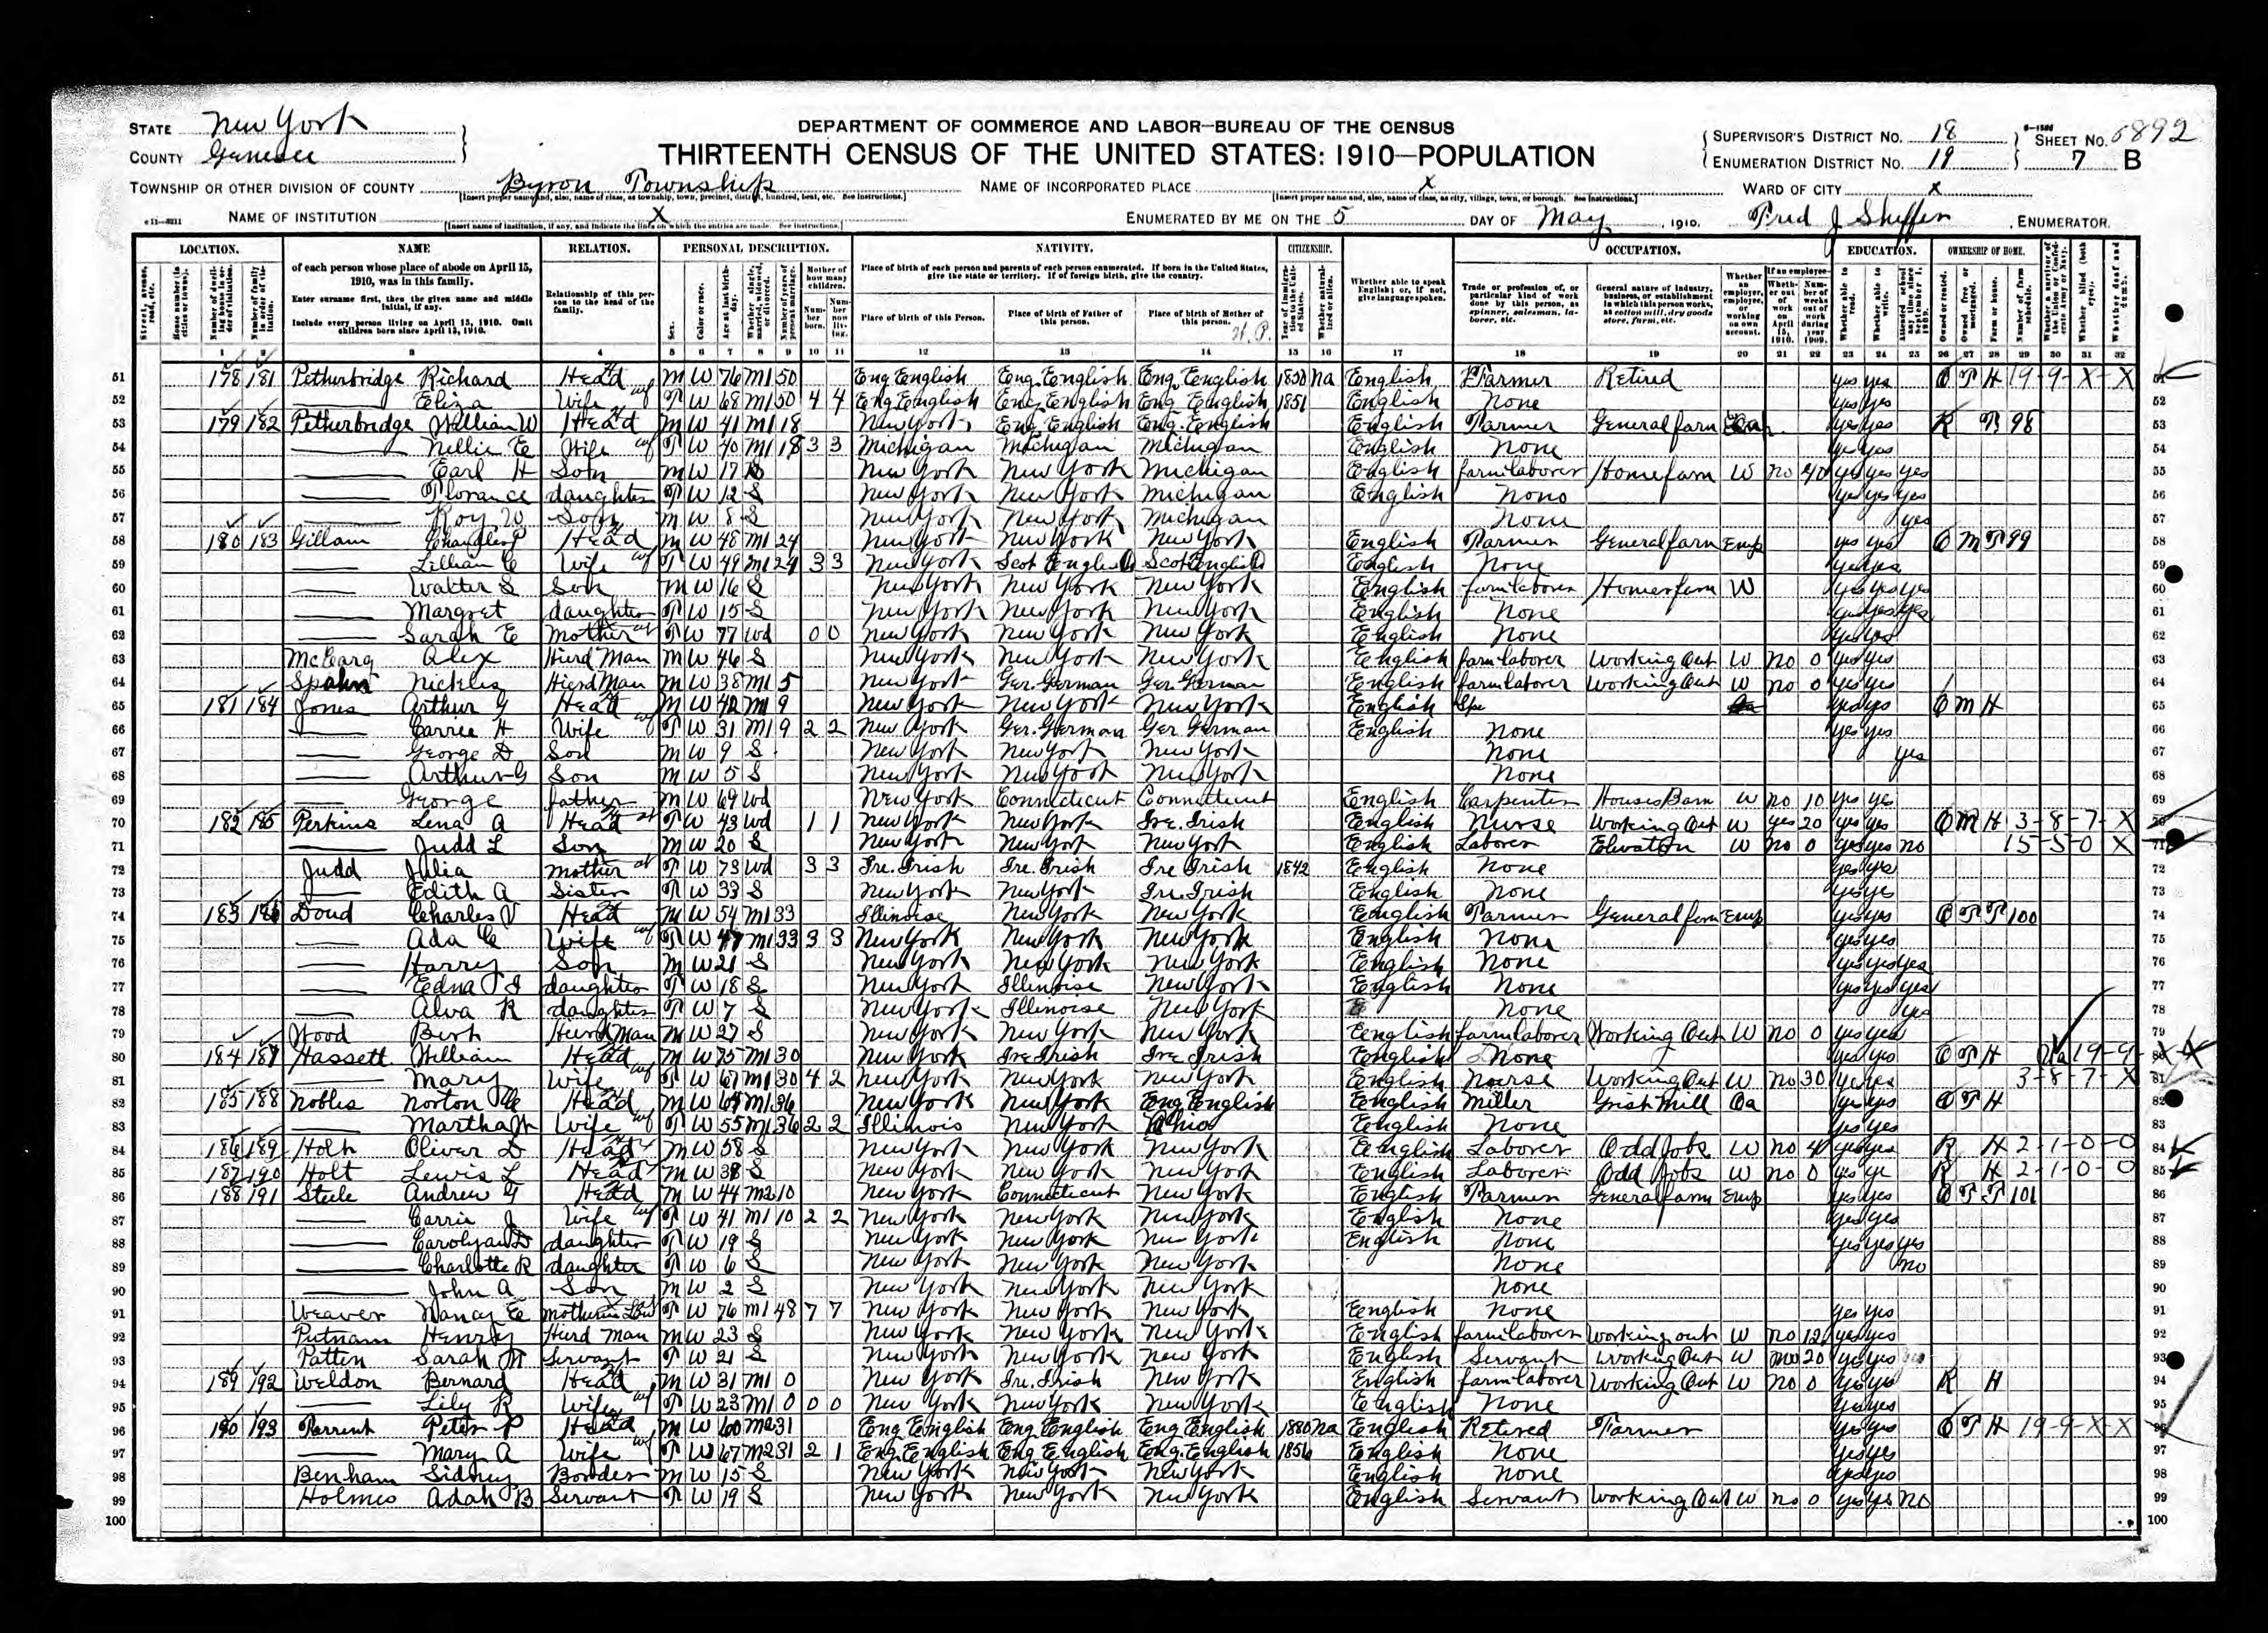 STATE New York
COUNTY Genesee
DEPARTMENT OF COMMERCE AND LABOR—BUREAU OF THE CENSUS
THIRTEENTH CENSUS OF THE UNITED STATES: 1910—POPULATION
SUPERVISOR'S DISTRICT NO. 18
ENUMERATION DISTRICT NO. 19
SHEET NO. 7 B
TOWNSHIP OR OTHER DIVISION OF COUNTY Byron Township NAME OF INCORPORATED PLACE X WARD OF CITY X
NAME OF INSTITUTION X ENUMERATED BY ME ON THE 5 DAY OF May, 1910. Fred J , ENUMERATOR.
LOCATION. NAME RELATION. PERSONAL DESCRIPTION. NATIVITY. CITIZENSHIP. OCCUPATION. EDUCATION. OWNERSHIP OF HOME.
of each person whose place of abode on April 15, 1910, was in this family.
Enter surname first, then the given name and middle initial, if any.
Include every person living on April 15, 1910. Omit children born since April 15, 1910.
Relationship of this person to the head of the family.
Place of birth of each person and parents of each person enumerated. If born in the United States, give the state or territory. If of foreign birth, give the country.
Place of birth of this Person. Place of birth of Father of this person. Place of birth of Mother of this person.
Whether able to speak English; or, if not, give language spoken.
1 2 3 4 5 6 7 8 9 10 11 12 13 14 15 16 17 18 19 20 21 22 23 24 25 26 27 28 29 30 31 32
51 178 181 Petherbridge Richard Head M W 76 M1 50 Eng English Eng. English Eng. English 1850 Na English Farmer Retired yes yes O F H 19-9-X-X
52 Eliza Wife F W 68 M1 50 4 4 Eng English Eng. English Eng English 1851 English None yes yes
53 179 182 Petherbridge William W Head M W 41 M1 18 New York Eng. English Eng. English English Farmer General farm yes yes R F 98
54 Nellie E Wife F W 40 M1 18 3 3 Michigan Michigan Michigan English None yes yes
55 Earl H Son M W 17 S New York New York Michigan English farm laborer Home farm W no 40 yes yes yes
56 Florance daughter F W 12 S New York New York Michigan English None yes yes yes
57 Roy W Son M W 8 S New York New York Michigan None yes
58 180 183 Gillam Head M W 48 M1 24 New York New York New York English Farmer General farm Emp yes yes O M F 99
59 Lillian C Wife F W 49 M1 24 3 3 New York Scot English Scot English English None yes yes
60 Walter S Son M W 16 S New York New York New York English farm laborer Home farm W yes yes yes
61 Margret daughter F W 15 S New York New York New York English None yes yes yes
62 Sarah E Mother F W 77 Wd 0 0 New York New York New York English None yes yes
63 Alex Hierd Man M W 46 S New York New York New York English farm laborer Working Out W no 0 yes yes
64 Spahn Nickles Hierd Man M W 38 M1 5 New York Ger. German Ger. German English farm laborer Working Out W no 0 yes yes
65 181 184 Jones Arthur G Head M W 42 M1 9 New York New York New York English yes yes O M H
66 Carrie H Wife F W 31 M1 9 2 2 New York Ger. German Ger German English None yes yes
67 George D Son M W 9 S New York New York New York None yes
68 Arthur G Son M W 5 S New York New York New York None
69 George father M W 69 Wd New York Connecticut Connecticut English Carpenter Houses Barn W no 10 yes yes
70 182 185 Perkins Lena A Head F W 43 Wd 1 1 New York New York Ire. Irish English Nurse Working Out W yes 20 yes yes O M H 3-8-7-X
71 Judd L Son M W 20 S New York New York New York English Laborer W no 0 yes yes no 15-5-0 X
72 Judd Julia Mother F W 73 Wd 3 3 Ire. Irish Ire. Irish Ire Irish 1842 English None yes yes
73 Edith A Sister F W 33 S New York New York Ire. Irish English None yes yes
74 183 186 Doud Charles V Head M W 54 M1 33 Illinoise New York New York English Farmer General farm Emp yes yes O F F 100
75 Ada C Wife F W 47 M1 33 3 3 New York New York New York English None yes yes
76 Harry Son M W 21 S New York New York New York English None yes yes yes
77 Edna daughter F W 18 S New York Illinoise New York English None yes yes yes
78 Alva R daughter F W 7 S New York Illinoise New York None yes
79 Wood Bert Hierd Man M W 27 S New York New York New York English farm laborer Working Out W no 0 yes yes
80 184 187 Hassett William Head M W 75 M1 30 New York Ire Irish Ire Irish English None yes yes O F H 19-9-X
81 Mary Wife F W 67 M1 30 4 2 New York New York New York English Nurse Working Out W no 30 yes yes 3-8-7-X
82 185 188 Nobles Norton Head M W 64 M1 36 New York New York Eng English English Miller Grist Mill Oa yes yes O F H
83 Martha Wife F W 55 M1 36 2 2 Illinois New York Ohio English None yes yes
84 186 189 Holt Oliver D Head M W 58 S New York New York New York English Laborer Odd Jobs W no 4 yes yes R H 2-1-0-0
85 187 190 Holt Lewis L Head M W 38 S New York New York New York English Laborer Odd Jobs W no 0 yes ye R H 2-1-0-0
86 188 191 Steele Andrew G Head M W 44 M2 10 New York Connecticut New York English Farmer General farm Emp yes yes O F F 101
87 Carrie J Wife F W 41 M1 10 2 2 New York New York New York English None yes yes
88 Carolyan D daughter F W 19 S New York New York New York English None yes yes yes
89 Charlotte R daughter F W 6 S New York New York New York None no
90 John A Son M W 2 S New York New York New York None
91 Weaver Nancy E Mother in Law F W 76 M1 48 7 7 New York New York New York English None yes yes
92 Putnam Henry Hierd Man M W 23 S New York New York New York English farm laborer Working out W no 12 yes yes
93 Patten Sarah M Servant F W 21 S New York New York New York English Servant Working Out W no 20 yes yes
94 189 192 Weldon Bernard Head M W 31 M1 0 New York Ire. Irish New York English farm laborer Working Out W no 0 yes yes R H
95 Lily R Wife F W 23 M1 0 0 0 New York New York New York English None yes yes
96 190 193 Parrent Peter P Head M W 60 M2 31 Eng English Eng English Eng English 1880 Na English Retired Farmer yes yes O F H 19-9-X-X
97 Mary A Wife F W 67 M2 31 2 1 Eng. English Eng English Eng. English 1856 English None yes yes
98 Benham Sidney Border M W 15 S New York New York New York English None yes yes
99 Holmes Adah B Servant F W 19 S New York New York New York English Servant Working Out W no 0 yes yes no
100